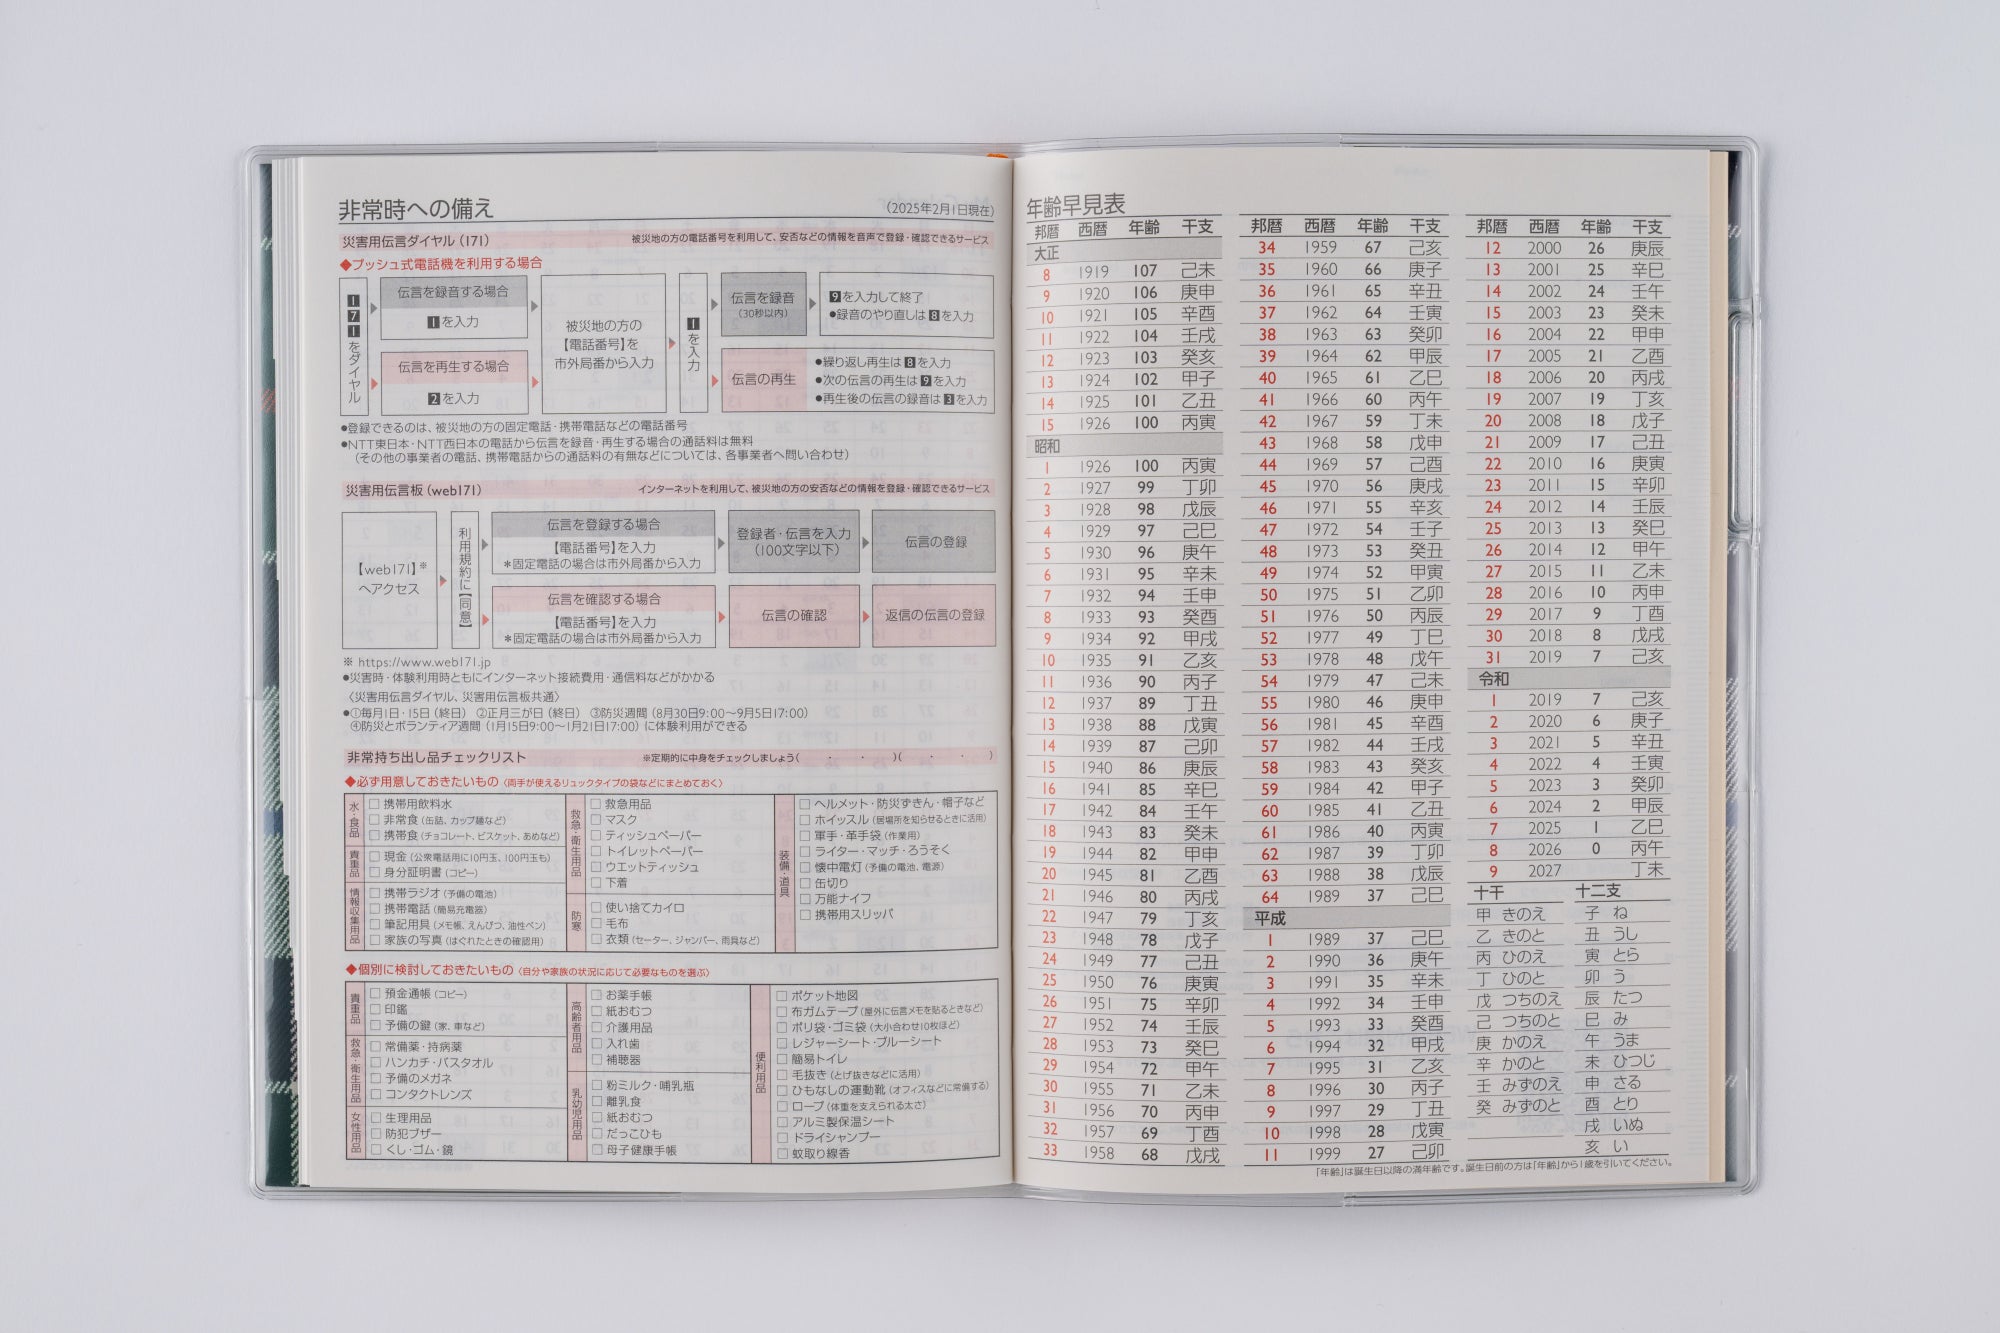 非常時への備え
(2025年2月1日現在)
災害用伝言ダイヤル(171)
被災地の方の電話番号を利用して、安否などの情報を音声で登録・確認できるサービス
◆プッシュ式電話機を利用する場合
171をダイヤル
伝言を録音する場合
1を入力
伝言を再生する場合
2を入力
被災地の方の
【電話番号】を
市外局番から入力
1を入力
伝言を録音
(30秒以内)
9を入力して終了
●録音のやり直しは8を入力
伝言の再生
●繰り返し再生は8を入力
●次の伝言の再生は9を入力
●再生後の伝言の録音は3を入力
●登録できるのは、被災地の方の固定電話・携帯電話などの電話番号
●NTT東日本・NTT西日本の電話から伝言を録音・再生する場合の通話料は無料
(その他の事業者の電話、携帯電話からの通話料の有無などについては、各事業者へ問い合わせ)
災害用伝言板(web171)
インターネットを利用して、被災地の方の安否などの情報を登録・確認できるサービス
【web171】※
へアクセス
利用規約に【同意】
伝言を登録する場合
【電話番号】を入力
*固定電話の場合は市外局番から入力
登録者・伝言を入力
(100文字以下)
伝言の登録
伝言を確認する場合
【電話番号】を入力
*固定電話の場合は市外局番から入力
伝言の確認
返信の伝言の登録
※ https://www.web171.jp
●災害時・体験利用時ともにインターネット接続費用・通信料などがかかる
〈災害用伝言ダイヤル、災害用伝言板共通〉
●①毎月1日・15日(終日) ②正月三が日(終日) ③防災週間(8月30日9:00~9月5日17:00)
④防災とボランティア週間(1月15日9:00~1月21日17:00)に体験利用ができる
非常持ち出し品チェックリスト
※定期的に中身をチェックしましょう( ・ ・ )( ・ ・ )
◆必ず用意しておきたいもの〈両手が使えるリュックタイプの袋などにまとめておく〉
水・食品
□ 携帯用飲料水
□ 非常食(缶詰、カップ麺など)
□ 携帯食(チョコレート、ビスケット、あめなど)
貴重品
□ 現金(公衆電話用に10円玉、100円玉も)
□ 身分証明書(コピー)
情報収集用品
□ 携帯ラジオ(予備の電池)
□ 携帯電話(簡易充電器)
□ 筆記用具(メモ帳、えんぴつ、油性ペン)
□ 家族の写真(はぐれたときの確認用)
救急・衛生用品
□ 救急用品
□ マスク
□ ティッシュペーパー
□ トイレットペーパー
□ ウエットティッシュ
□ 下着
防寒
□ 使い捨てカイロ
□ 毛布
□ 衣類(セーター、ジャンパー、雨具など)
装備・道具
□ ヘルメット・防災ずきん・帽子など
□ ホイッスル(居場所を知らせるときに活用)
□ 軍手・革手袋(作業用)
□ ライター・マッチ・ろうそく
□ 懐中電灯(予備の電池、電源)
□ 缶切り
□ 万能ナイフ
□ 携帯用スリッパ
◆個別に検討しておきたいもの〈自分や家族の状況に応じて必要なものを選ぶ〉
貴重品
□ 預金通帳(コピー)
□ 印鑑
□ 予備の鍵(家、車など)
救急・衛生用品
□ 常備薬・持病薬
□ ハンカチ・バスタオル
□ 予備のメガネ
□ コンタクトレンズ
女性用品
□ 生理用品
□ 防犯ブザー
□ くし・ゴム・鏡
高齢者用品
□ お薬手帳
□ 紙おむつ
□ 介護用品
□ 入れ歯
□ 補聴器
乳幼児用品
□ 粉ミルク・哺乳瓶
□ 離乳食
□ 紙おむつ
□ だっこひも
□ 母子健康手帳
便利用品
□ ポケット地図
□ 布ガムテープ(屋外に伝言メモを貼るときなど)
□ ポリ袋・ゴミ袋(大小合わせ10枚ほど)
□ レジャーシート・ブルーシート
□ 簡易トイレ
□ 毛抜き(とげ抜きなどに活用)
□ ひもなしの運動靴(オフィスなどに常備する)
□ ロープ(体重を支えられる太さ)
□ アルミ製保温シート
□ ドライシャンプー
□ 蚊取り線香
年齢早見表
邦暦 西暦 年齢 干支
大正
8 1919 107 己未
9 1920 106 庚申
10 1921 105 辛酉
11 1922 104 壬戌
12 1923 103 癸亥
13 1924 102 甲子
14 1925 101 乙丑
15 1926 100 丙寅
昭和
1 1926 100 丙寅
2 1927 99 丁卯
3 1928 98 戊辰
4 1929 97 己巳
5 1930 96 庚午
6 1931 95 辛未
7 1932 94 壬申
8 1933 93 癸酉
9 1934 92 甲戌
10 1935 91 乙亥
11 1936 90 丙子
12 1937 89 丁丑
13 1938 88 戊寅
14 1939 87 己卯
15 1940 86 庚辰
16 1941 85 辛巳
17 1942 84 壬午
18 1943 83 癸未
19 1944 82 甲申
20 1945 81 乙酉
21 1946 80 丙戌
22 1947 79 丁亥
23 1948 78 戊子
24 1949 77 己丑
25 1950 76 庚寅
26 1951 75 辛卯
27 1952 74 壬辰
28 1953 73 癸巳
29 1954 72 甲午
30 1955 71 乙未
31 1956 70 丙申
32 1957 69 丁酉
33 1958 68 戊戌
邦暦 西暦 年齢 干支
34 1959 67 己亥
35 1960 66 庚子
36 1961 65 辛丑
37 1962 64 壬寅
38 1963 63 癸卯
39 1964 62 甲辰
40 1965 61 乙巳
41 1966 60 丙午
42 1967 59 丁未
43 1968 58 戊申
44 1969 57 己酉
45 1970 56 庚戌
46 1971 55 辛亥
47 1972 54 壬子
48 1973 53 癸丑
49 1974 52 甲寅
50 1975 51 乙卯
51 1976 50 丙辰
52 1977 49 丁巳
53 1978 48 戊午
54 1979 47 己未
55 1980 46 庚申
56 1981 45 辛酉
57 1982 44 壬戌
58 1983 43 癸亥
59 1984 42 甲子
60 1985 41 乙丑
61 1986 40 丙寅
62 1987 39 丁卯
63 1988 38 戊辰
64 1989 37 己巳
平成
1 1989 37 己巳
2 1990 36 庚午
3 1991 35 辛未
4 1992 34 壬申
5 1993 33 癸酉
6 1994 32 甲戌
7 1995 31 乙亥
8 1996 30 丙子
9 1997 29 丁丑
10 1998 28 戊寅
11 1999 27 己卯
邦暦 西暦 年齢 干支
12 2000 26 庚辰
13 2001 25 辛巳
14 2002 24 壬午
15 2003 23 癸未
16 2004 22 甲申
17 2005 21 乙酉
18 2006 20 丙戌
19 2007 19 丁亥
20 2008 18 戊子
21 2009 17 己丑
22 2010 16 庚寅
23 2011 15 辛卯
24 2012 14 壬辰
25 2013 13 癸巳
26 2014 12 甲午
27 2015 11 乙未
28 2016 10 丙申
29 2017 9 丁酉
30 2018 8 戊戌
31 2019 7 己亥
令和
1 2019 7 己亥
2 2020 6 庚子
3 2021 5 辛丑
4 2022 4 壬寅
5 2023 3 癸卯
6 2024 2 甲辰
7 2025 1 乙巳
8 2026 0 丙午
9 2027 丁未
十干 十二支
甲 きのえ 子 ね
乙 きのと 丑 うし
丙 ひのえ 寅 とら
丁 ひのと 卯 う
戊 つちのえ 辰 たつ
己 つちのと 巳 み
庚 かのえ 午 うま
辛 かのと 未 ひつじ
壬 みずのえ 申 さる
癸 みずのと 酉 とり
戌 いぬ
亥 い
「年齢」は誕生日以降の満年齢です。誕生日前の方は「年齢」から1歳を引いてください。